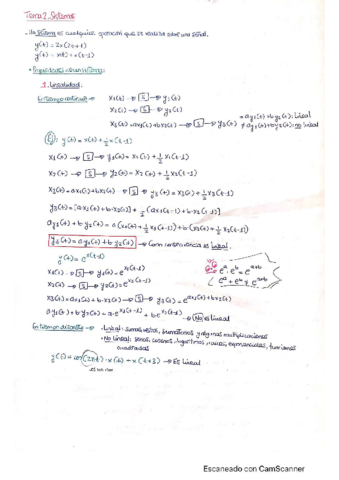 Tema 2. Sistemas
- Un sistema es cualquier operación que se realiza sobre una señal.
y(t) = 2x(2t+1)
y(t) = x(t) + x(t-1)
• Propiedades de un sistema:
1. Linealidad.
En tiempo continuo → x₁(t) → [S] → y₁(t)
x₂(t) → [S] → y₂(t)
x₃(t) = a x₁(t) + b x₂(t) → [S] → y₃(t) = a y₁(t) + b y₂(t): lineal
≠ a y₁(t) + b y₂(t): no lineal
Ej: y(t) = x(t) + ½ x(t-1)
x₁(t) → [S] → y₁(t) = x₁(t) + ½ x₁(t-1)
x₂(t) → [S] → y₂(t) = x₂(t) + ½ x₂(t-1)
x₃(t) = a x₁(t) + b x₂(t) → [S] → y₃(t) = x₃(t) + ½ x₃(t-1)
y₃(t) = [a x₁(t) + b·x₂(t)] + ½ [a x₁(t-1) + b·x₂(t-1)]
a y₁(t) + b y₂(t) = a (x₁(t) + ½ x₁(t-1)) + b (x₂(t) + ½ x₂(t-1))
y₃(t) = a y₁(t) + b y₂(t) → Como consecuencia es lineal.
y(t) = e^x(t-1)
x₁(t) → [S] → y₁(t) = e^x₁(t-1)
x₂(t) → [S] → y₂(t) = e^x₂(t-1)
eᵃ · eᵇ = eᵃ⁺ᵇ
eᵃ + eᵇ ≠ eᵃ⁺ᵇ
x₃(t) = a x₁(t) + b x₂(t) → [S] → y₃(t) = e^a x₁(t) + b x₂(t)
a y₁(t) + b y₂(t) = a·e^x₁(t-1) + b e^x₂(t-1) → No es lineal
En tiempo discreto → • Lineal: sumas, restas, sumatorios y algunas multiplicaciones
• No lineal: senos, cosenos, logaritmos, raíces, exponenciales, funciones
cuadradas
y(t) = cos(2πt) · x(t) + x(t+3) → Es lineal
Escaneado con CamScanner